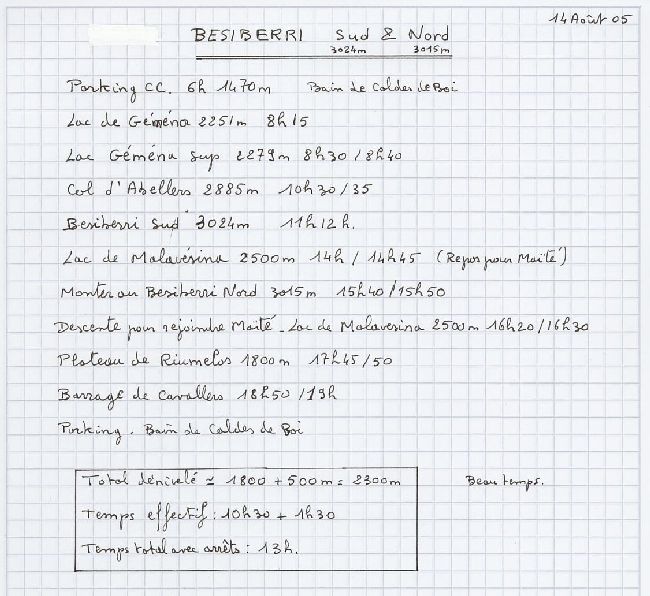 14 Août 05
BESIBERRI Sud & Nord
3024m 3015m
Parking CC. 6h 1470m Bain de Caldes de Boi
Lac de Géména 2251m 8h15
Lac Géména sup 2279m 8h30 / 8h40
Col d'Abellers 2885m 10h30/35
Besiberri Sud 3024m 11h 12h.
Lac de Malavésina 2500m 14h / 14h45 (Repos pour Maïté)
Monter au Besiberri Nord 3015m 15h40/15h50
Descente pour rejoindre Maïté. Lac de Malavesina 2500m 16h20/16h30
Plateau de Riumelos 1800m 17h45/50
Barrage de Cavallers 18h50/19h
Parking. Bain de Caldes de Boi
Total dénivelé ≃ 1800 + 500m = 2300m
Beau temps.
Temps effectif : 10h30 + 1h30
Temps total avec arrêts : 13h.